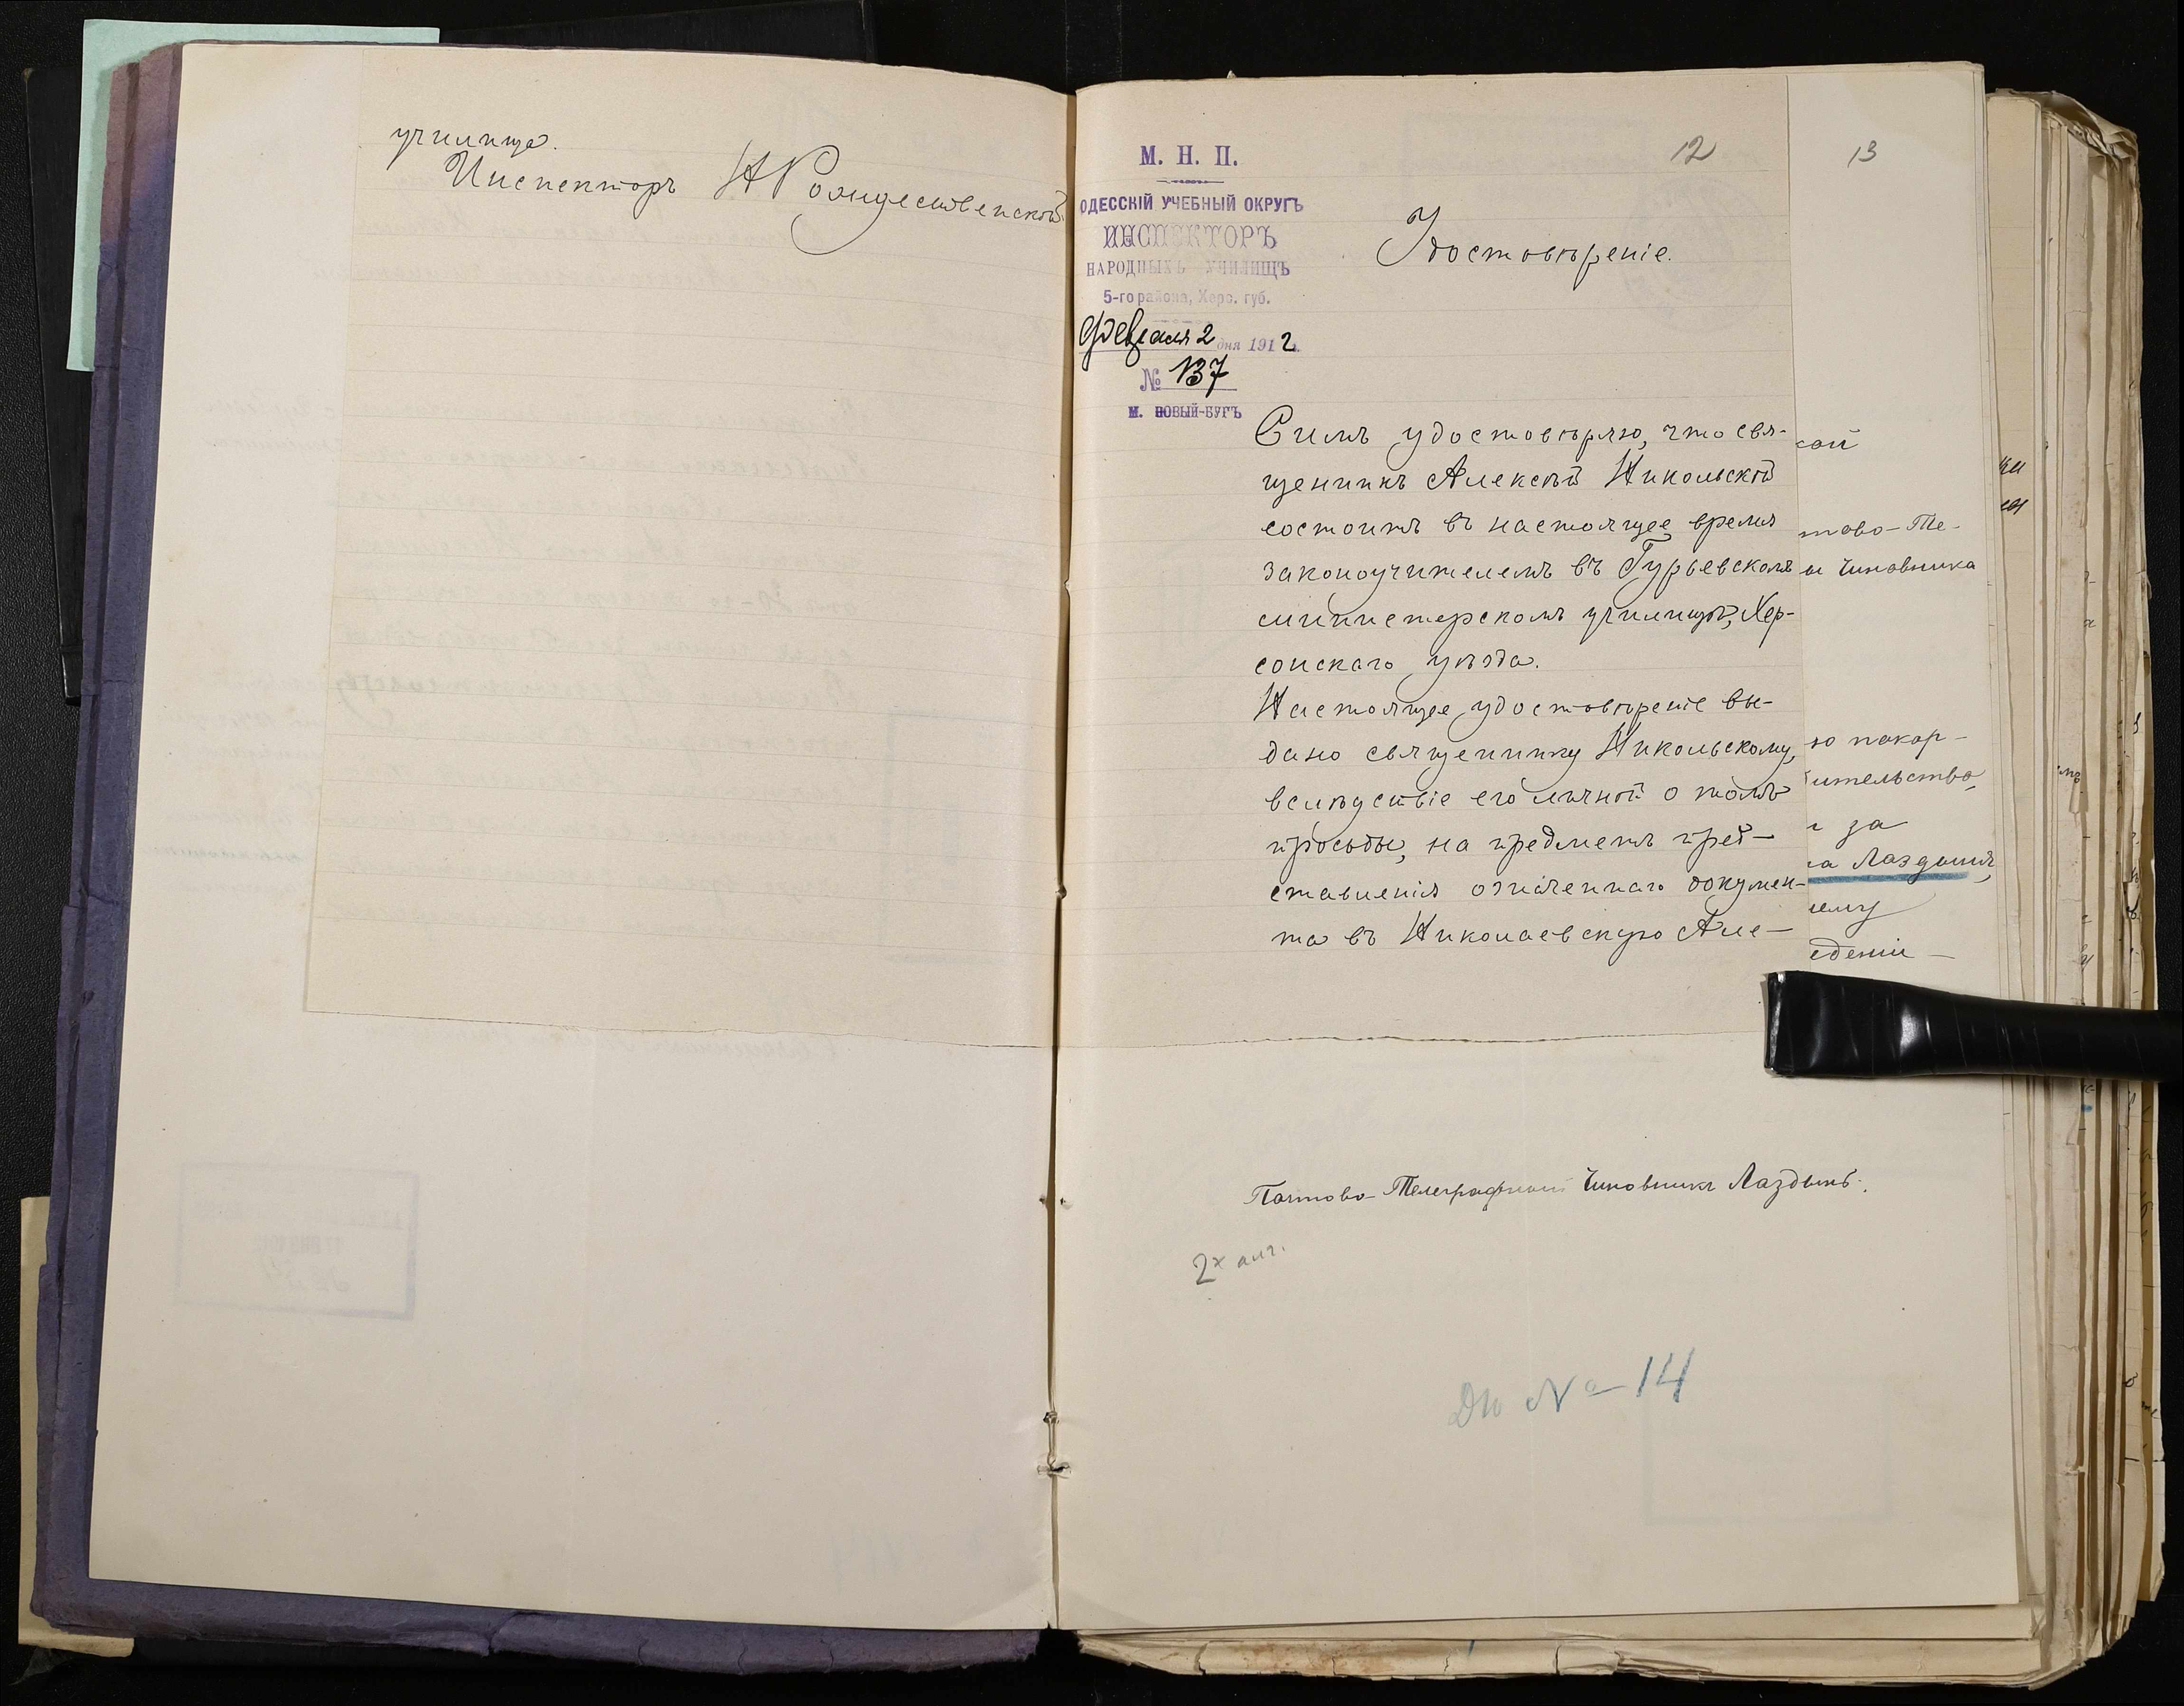 училища.
Инспекторъ Н Рождественскій
12
М. Н. П.
ОДЕССКІЙ УЧЕБНЫЙ ОКРУГЪ
ИНСПЕКТОРЪ
НАРОДНЫХЪ УЧИЛИЩЪ
5-го района, Херс. губ.
Февраля 2 дня 1912 г.
№ 137
М. НОВЫЙ-БУГЪ
Удостовѣреніе.
Симъ удостовѣряю, что свя-
щенникъ Алексѣй Никольскій
состоитъ въ настоящее время
законоучителемъ въ Гурьевскомъ
министерскомъ училищѣ, Хер-
сонскаго уѣзда.
Настоящее удостовѣреніе вы-
дано священнику Никольскому,
вслѣдствіе его личной о томъ
просьбы, на предметъ пред-
ставленія означеннаго докумен-
та въ Николаевскую Але-
13
ской
тово-Те-
и Чиновника
ю покор-
ительство,
за
на Лаздыня,
ему
едении-
Почтово-Телеграфный Чиновникъ Лаздынь.
2х
№ 14